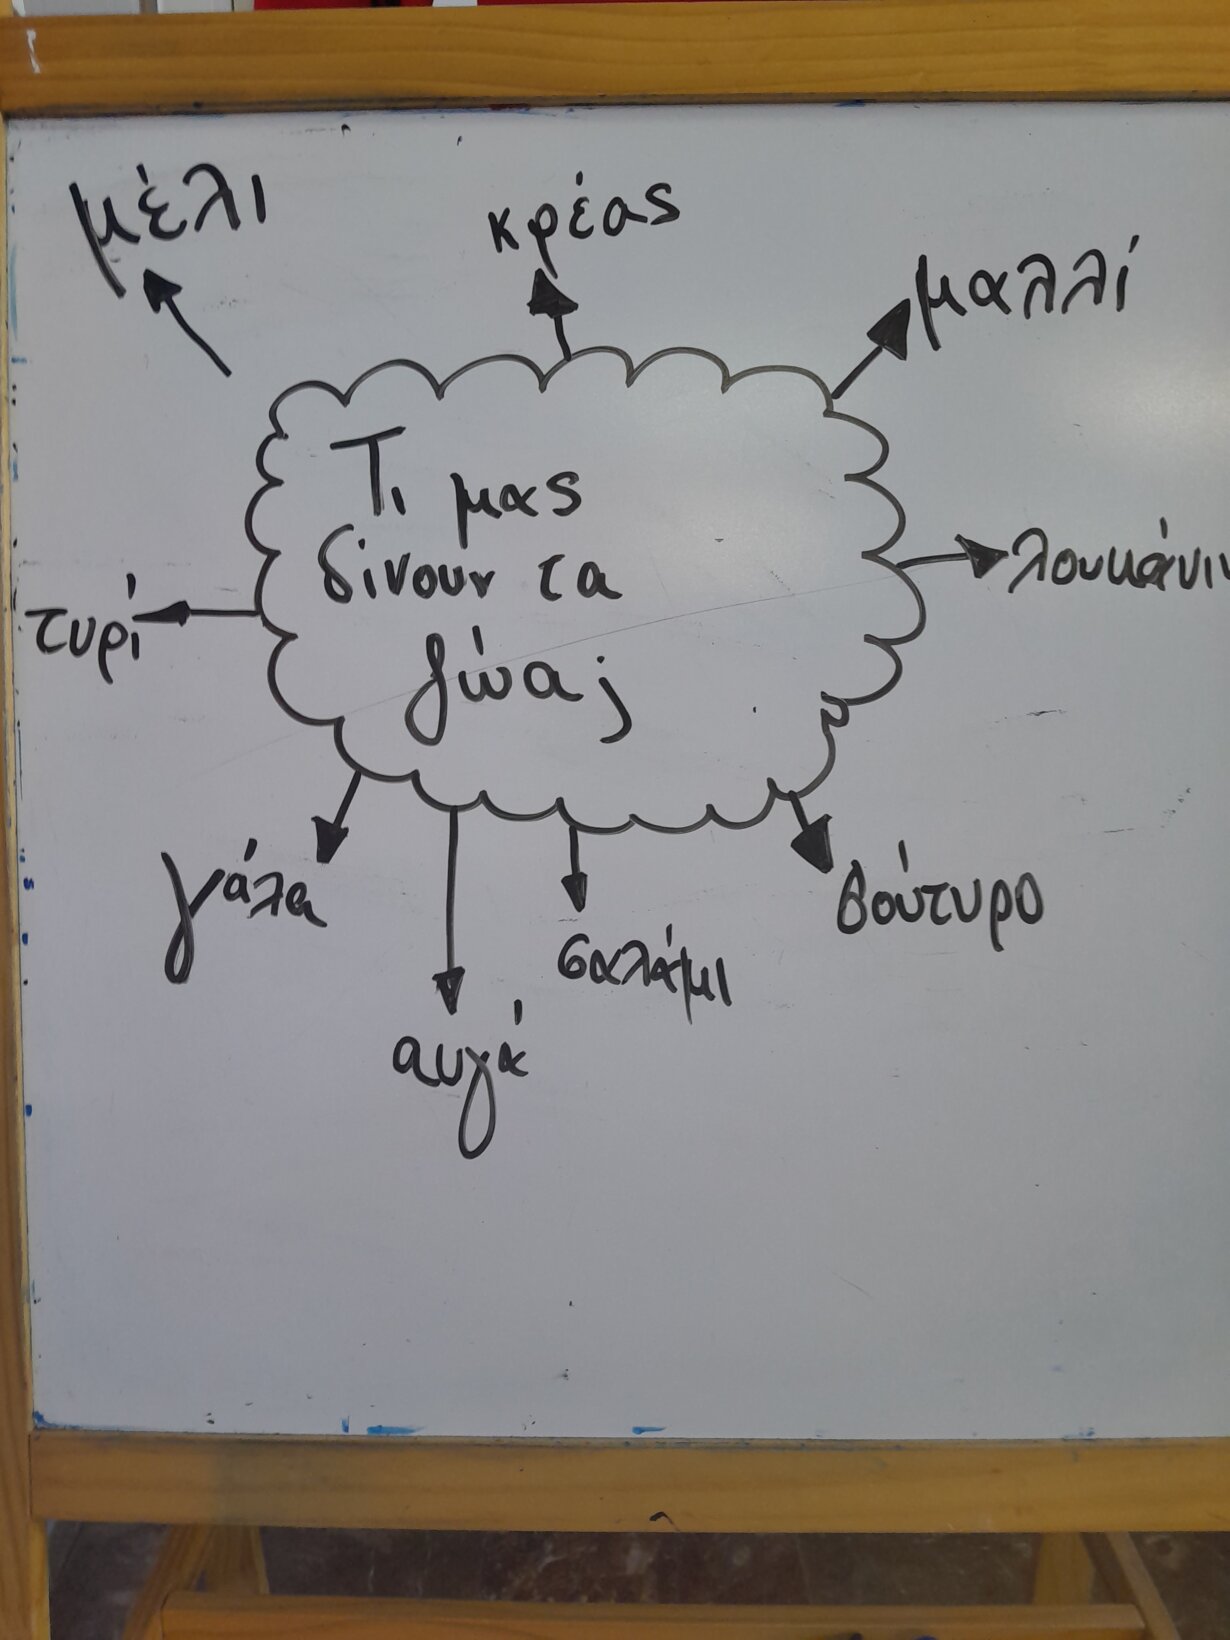 μέλι
κρέας
μαλλί
Τι μας
δίνουν τα
ζώα;
λουκάνι
τυρί
γάλα
βούτυρο
σαλάμι
αυγά